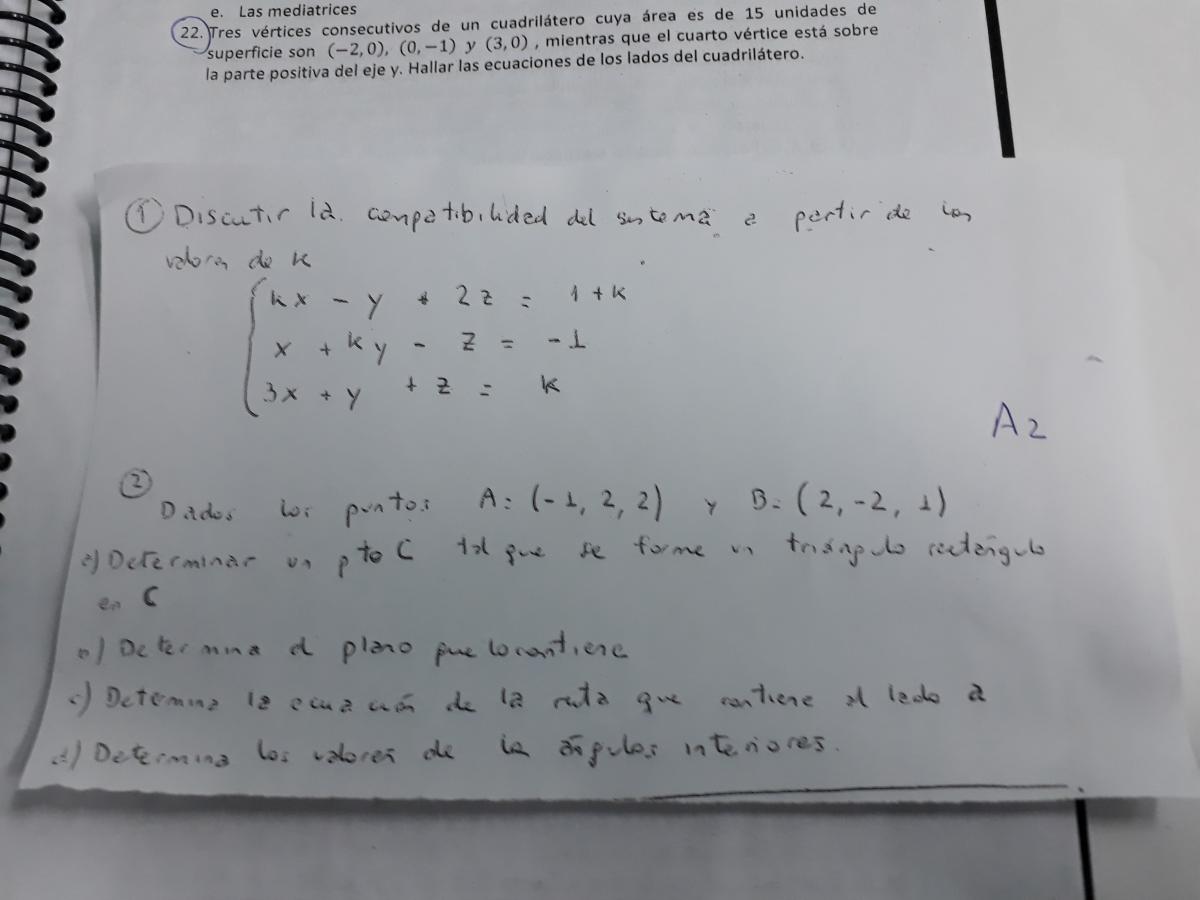 e. Las mediatrices
22. Tres vértices consecutivos de un cuadrilátero cuya área es de 15 unidades de
superficie son (−2,0), (0,−1) y (3,0) , mientras que el cuarto vértice está sobre
la parte positiva del eje y. Hallar las ecuaciones de los lados del cuadrilátero.
① Discutir la compatibilidad del sistema a partir de los
valores de k
kx - y + 2z = 1+k
x + ky - z = -1
3x + y + z = k
A2
②
Dados los puntos A = (-1, 2, 2) y B = (2, -2, 1)
a) Determinar un pto C tal que se forme un triángulo rectángulo
en C
b) Determina el plano que lo contiene
c) Determina la ecuación de la recta que contiene al lado a
d) Determina los valores de los ángulos interiores.